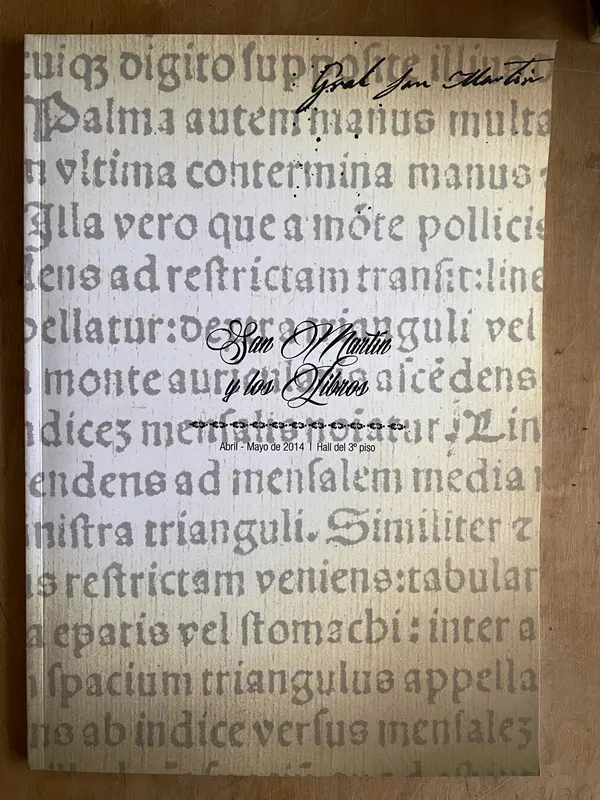 cuiqȝ digito ſuppoſite
Gral San Martin
Palma autem manus multa
vltima contermina manus
Illa vero que a mōte pollicis
dens ad reſtrictam tranſit: line
pellatur: trianguli vel
San Martín
a monte aſcēdens
y los Libros
indiceȝ menſalis noīatur. Lin
Abril - Mayo de 2014 | Hall del 3º piso
endens ad menſalem media
niſtra trianguli. Similiter ⁊
is reſtrictam veniens: tabular
a epatis vel ſtomachi: inter a
ſpacium triangulus appella
ns ab indice verſus menſaleȝ